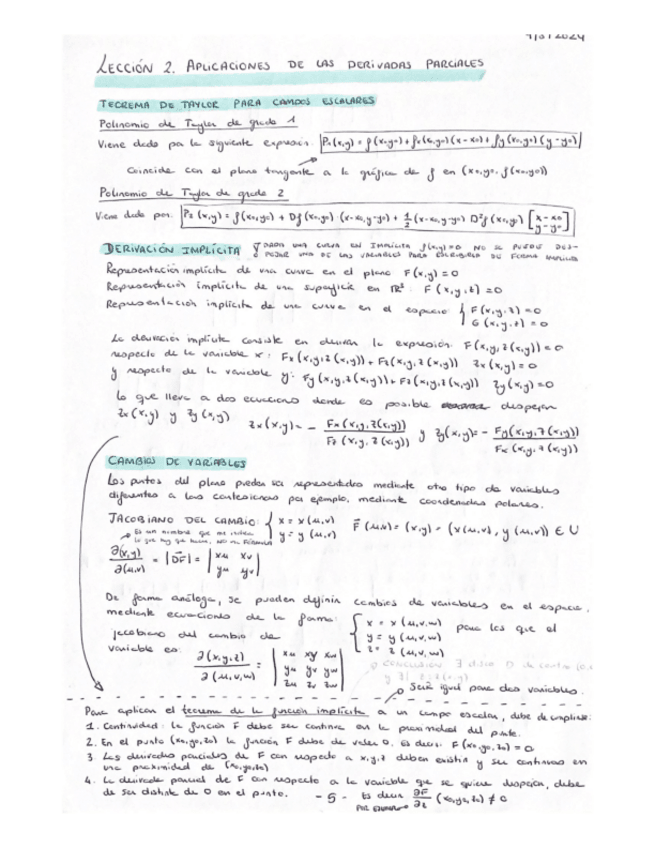 LECCIÓN 2. APLICACIONES DE LAS DERIVADAS PARCIALES
TEOREMA DE TAYLOR PARA CAMPOS ESCALARES
Polinomio de Taylor de grado 1
Viene dado por la siguiente expresión: P₁(x,y) = f(x₀,y₀) + fx(x₀,y₀)(x-x₀) + fy(x₀,y₀)(y-y₀)
Coincide con el plano tangente a la gráfica de f en (x₀,y₀, f(x₀,y₀))
Polinomio de Taylor de grado 2
Viene dado por: P₂(x,y) = f(x₀,y₀) + Df(x₀,y₀)·(x-x₀,y-y₀) + 1/2 (x-x₀,y-y₀) D²f(x₀,y₀) [x-x₀ y-y₀]
DERIVACIÓN IMPLÍCITA DADA UNA CURVA EN IMPLÍCITA f(x,y)=0 NO SE PUEDE DES-
PEJAR UNA DE LAS VARIABLES PARA ESCRIBIRLO DE FORMA
Representación implícita de una curva en el plano: F(x,y) = 0
Representación implícita de una superficie en ℝ³: F(x,y,z) = 0
Representación implícita de una curva en el espacio: { F(x,y,z) = 0
G(x,y,z) = 0
La derivación implícita consiste en derivar la expresión: F(x,y,z(x,y)) = 0
respecto de la variable x: Fx(x,y,z(x,y)) + Fz(x,y,z(x,y)) zx(x,y) = 0
y respecto de la variable y: Fy(x,y,z(x,y)) + Fz(x,y,z(x,y)) zy(x,y) = 0
Lo que lleva a dos ecuaciones donde es posible despejar
zx(x,y) y zy(x,y) zx(x,y) = - Fx(x,y,z(x,y)) / Fz(x,y,z(x,y)) y zy(x,y) = - Fy(x,y,z(x,y)) / Fx(x,y,z(x,y))
CAMBIOS DE VARIABLES
Los puntos del plano pueden ser representados mediante otro tipo de variables
diferentes a las cartesianas por ejemplo, mediante coordenadas polares.
JACOBIANO DEL CAMBIO: { x = x(u,v) F(u,v) = (x,y) = (x(u,v), y(u,v)) ∈ U
y = y(u,v)
Es un nombre que me indica
lo que hay que hacer, NO UNA FÓRMULA
∂(x,y)/∂(u,v) = |DF| = | xu xv |
| yu yv |
De forma análoga, se pueden definir cambios de variables en el espacio,
mediante ecuaciones de la forma: { x = x(u,v,w) para los que el
y = y(u,v,w)
z = z(u,v,w)
jacobiano del cambio de
variable es: ∂(x,y,z)/∂(u,v,w) = | xu xy xw |
| yu yv yw |
| zu zv zw |
Sería igual para dos variables.
Para aplicar el teorema de la función implícita a un campo escalar, debe de cumplirse:
1. Continuidad: la función F debe ser continua en la proximidad del punto.
2. En el punto (x₀,y₀,z₀) la función F debe de valer 0. Es decir: F(x₀,y₀,z₀) = 0
3. Las derivadas parciales de F con respecto a x,y,z deben existir y ser continuas en
una proximidad de (x₀,y₀,z₀)
4. La derivada parcial de F con respecto a la variable que se quiere despejar, debe
de ser distinta de 0 en el punto. - 5 - Es decir ∂F/∂z (x₀,y₀,z₀) ≠ 0
POR EJEMPLO